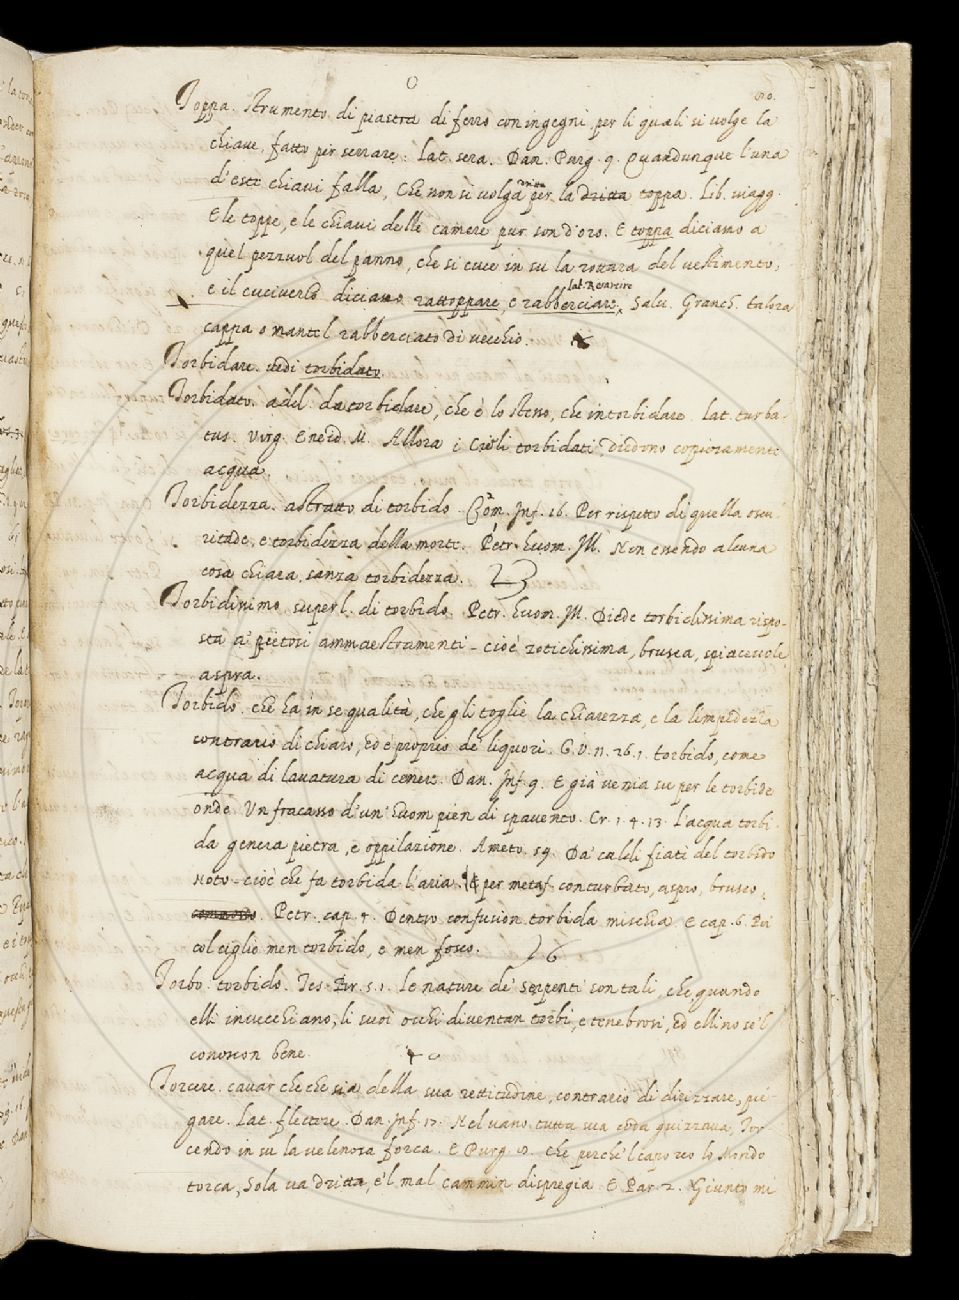 Toppa. strumento di piastra di ferro con ingegni, per li quali si volge la
chiave, fatto per serrare. Lat. sera. Dan. Purg. 9. Quandunque l'una
d'este chiavi falla, Che non si volga per la dritta toppa. Lib. viagg.
E le toppe, e le chiavi delle camere pur son d'oro. E toppa diciamo a
quel pezzuol del panno, che si cuce in su la rottura del vestimento,
lat. Resarcire
e il cucirverlo diciamo rattoppare, e rabberciare, Salv. Granch. talora
cappa o mantel rabberciato di vecchio.
Torbidare. vedi torbidato
Torbidato. da torbidare, che è lo steso, che intorbidare. lat. turba-
tus. Virg. Eneid. M. Allora i Cieli torbidati diedono copiosamente
acqua.
Torbidezza. astratto di torbido. Com. Inf. 16. Per rispetto di quella oscu-
ritade, e torbidezza della morte. Petr. huom. Ill. Non essendo alcuna
cosa chiara, sanza torbidezza.
Torbidisimo. superl. di torbido. Petr. huom. Ill. Diede torbidissima rispo-
sta a' pietosi ammaestramenti - cioè rozichissima, brusca, spiacevole
aspra.
Torbido. che ha in se qualità, che gli toglie la chiarezza, e la limpidezza
contrario di chiaro, ed è proprio de' liquori. G. V. 11. 26. 1. torbido, come
acqua di lavatura di cenere. Dan. Inf. 9. E già venia su per le torbide
onde Un fracasso d'un suom pien di spavento. Cr. 1. 4. 13. l'acqua torbi-
da genera pietra, e oppilazione. Ameto. 59. Da' caldi fiati del torbido
Noto - cioè che fa torbida l'aria. per metaf. conturbato, aspro, brusco,
Petr. cap. 4. Dentro confusion torbida mischia. E cap. 6. Più
col ciglio men torbido, e men fosco.
Torbo. torbido. Tes. Br. 5. 1. le nature de' serpenti son tali, che quando
elli invecchiano, li suoi occhi diventan torbi, e tenebrosi, ed elli no se 'l
conoscon bene.
Torcere. cavar che che sia della sua rettitudine, contrario di dirizzare, pie-
gare. Lat. flectere. Dan. Inf. 17. Nel vano tutta sua coda guizzava, Tor-
cendo in su la velenosa forca. E Purg. 8. che perche 'l capo reo lo Mondo
torca, Sola va dritta, e 'l mal cammin dispregia E Par. 2. Giunto mi